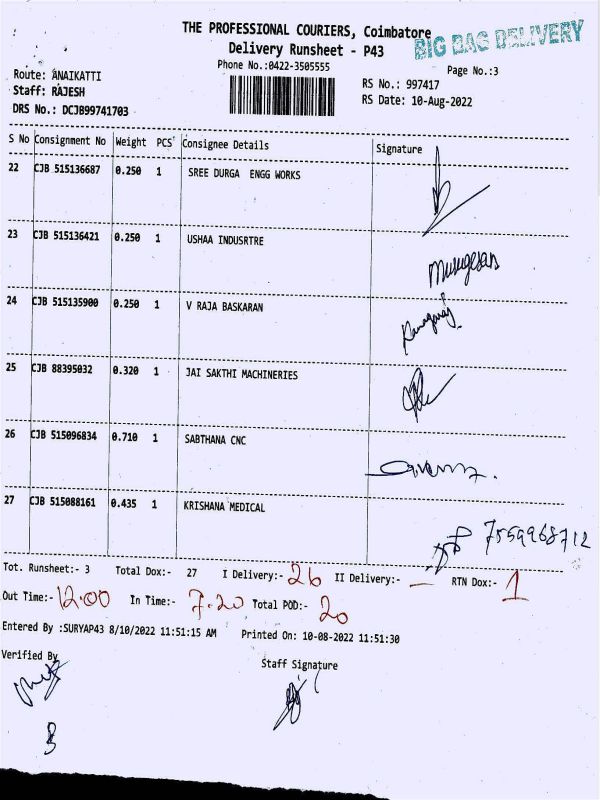 THE PROFESSIONAL COURIERS, Coimbatore
BIG BAG DELIVERY
Delivery Runsheet - P43
Phone No.:0422-3505555
Page No.:3
Route: ANAIKATTI
RS No.: 997417
Staff: RAJESH
RS Date: 10-Aug-2022
DRS No.: DCJB99741703
S No Consignment No Weight PCS Consignee Details Signature
22 CJB 515136687 0.250 1 SREE DURGA ENGG WORKS
23 CJB 515136421 0.250 1 USHAA INDUSRTRE Murugesan
24 CJB 515135900 0.250 1 V RAJA BASKARAN
25 CJB 88395032 0.320 1 JAI SAKTHI MACHINERIES
26 CJB 515096834 0.710 1 SABTHANA CNC
27 CJB 515088161 0.435 1 KRISHANA MEDICAL 7559968712
Tot. Runsheet:- 3 Total Dox:- 27 I Delivery:- 26 II Delivery:- — RTN Dox:- 1
Out Time:- 12.00 In Time:- 7.20 Total POD:- 20
Entered By :SURYAP43 8/10/2022 11:51:15 AM Printed On: 10-08-2022 11:51:30
Verified By Staff Signature